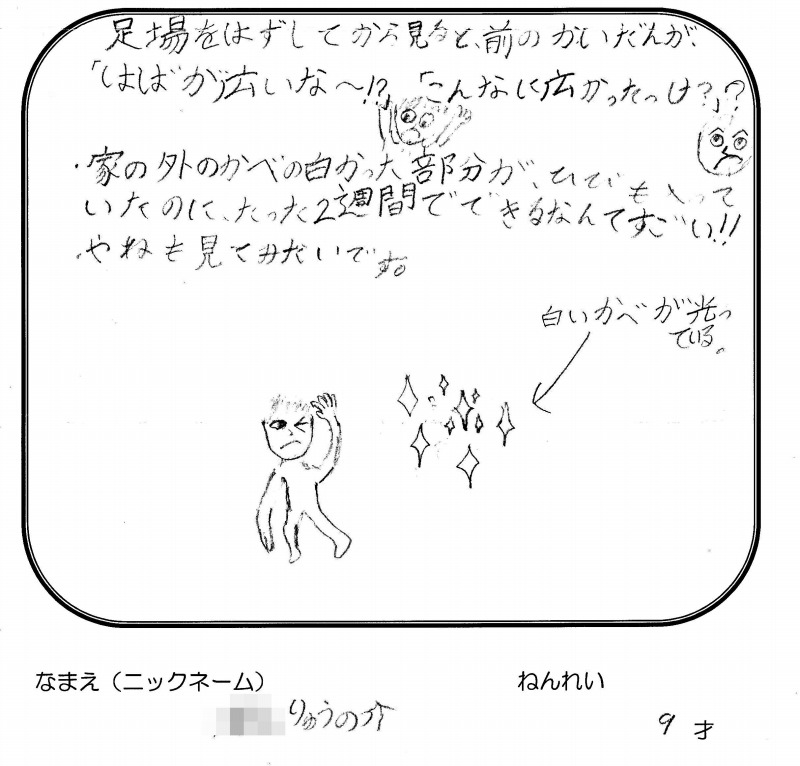 足場をはずしてから見ると、前のかいだんが、
「はばが広いな〜!?」「こんなに広かったっけ?」?
・家の外のかべの白かった部分が、とって
いたのに、たった2週間でできるなんてすごい!!
・やねも見てみたいです。
白いかべが光っ
ている。
なまえ（ニックネーム）
ねんれい
りゅうの介
9才